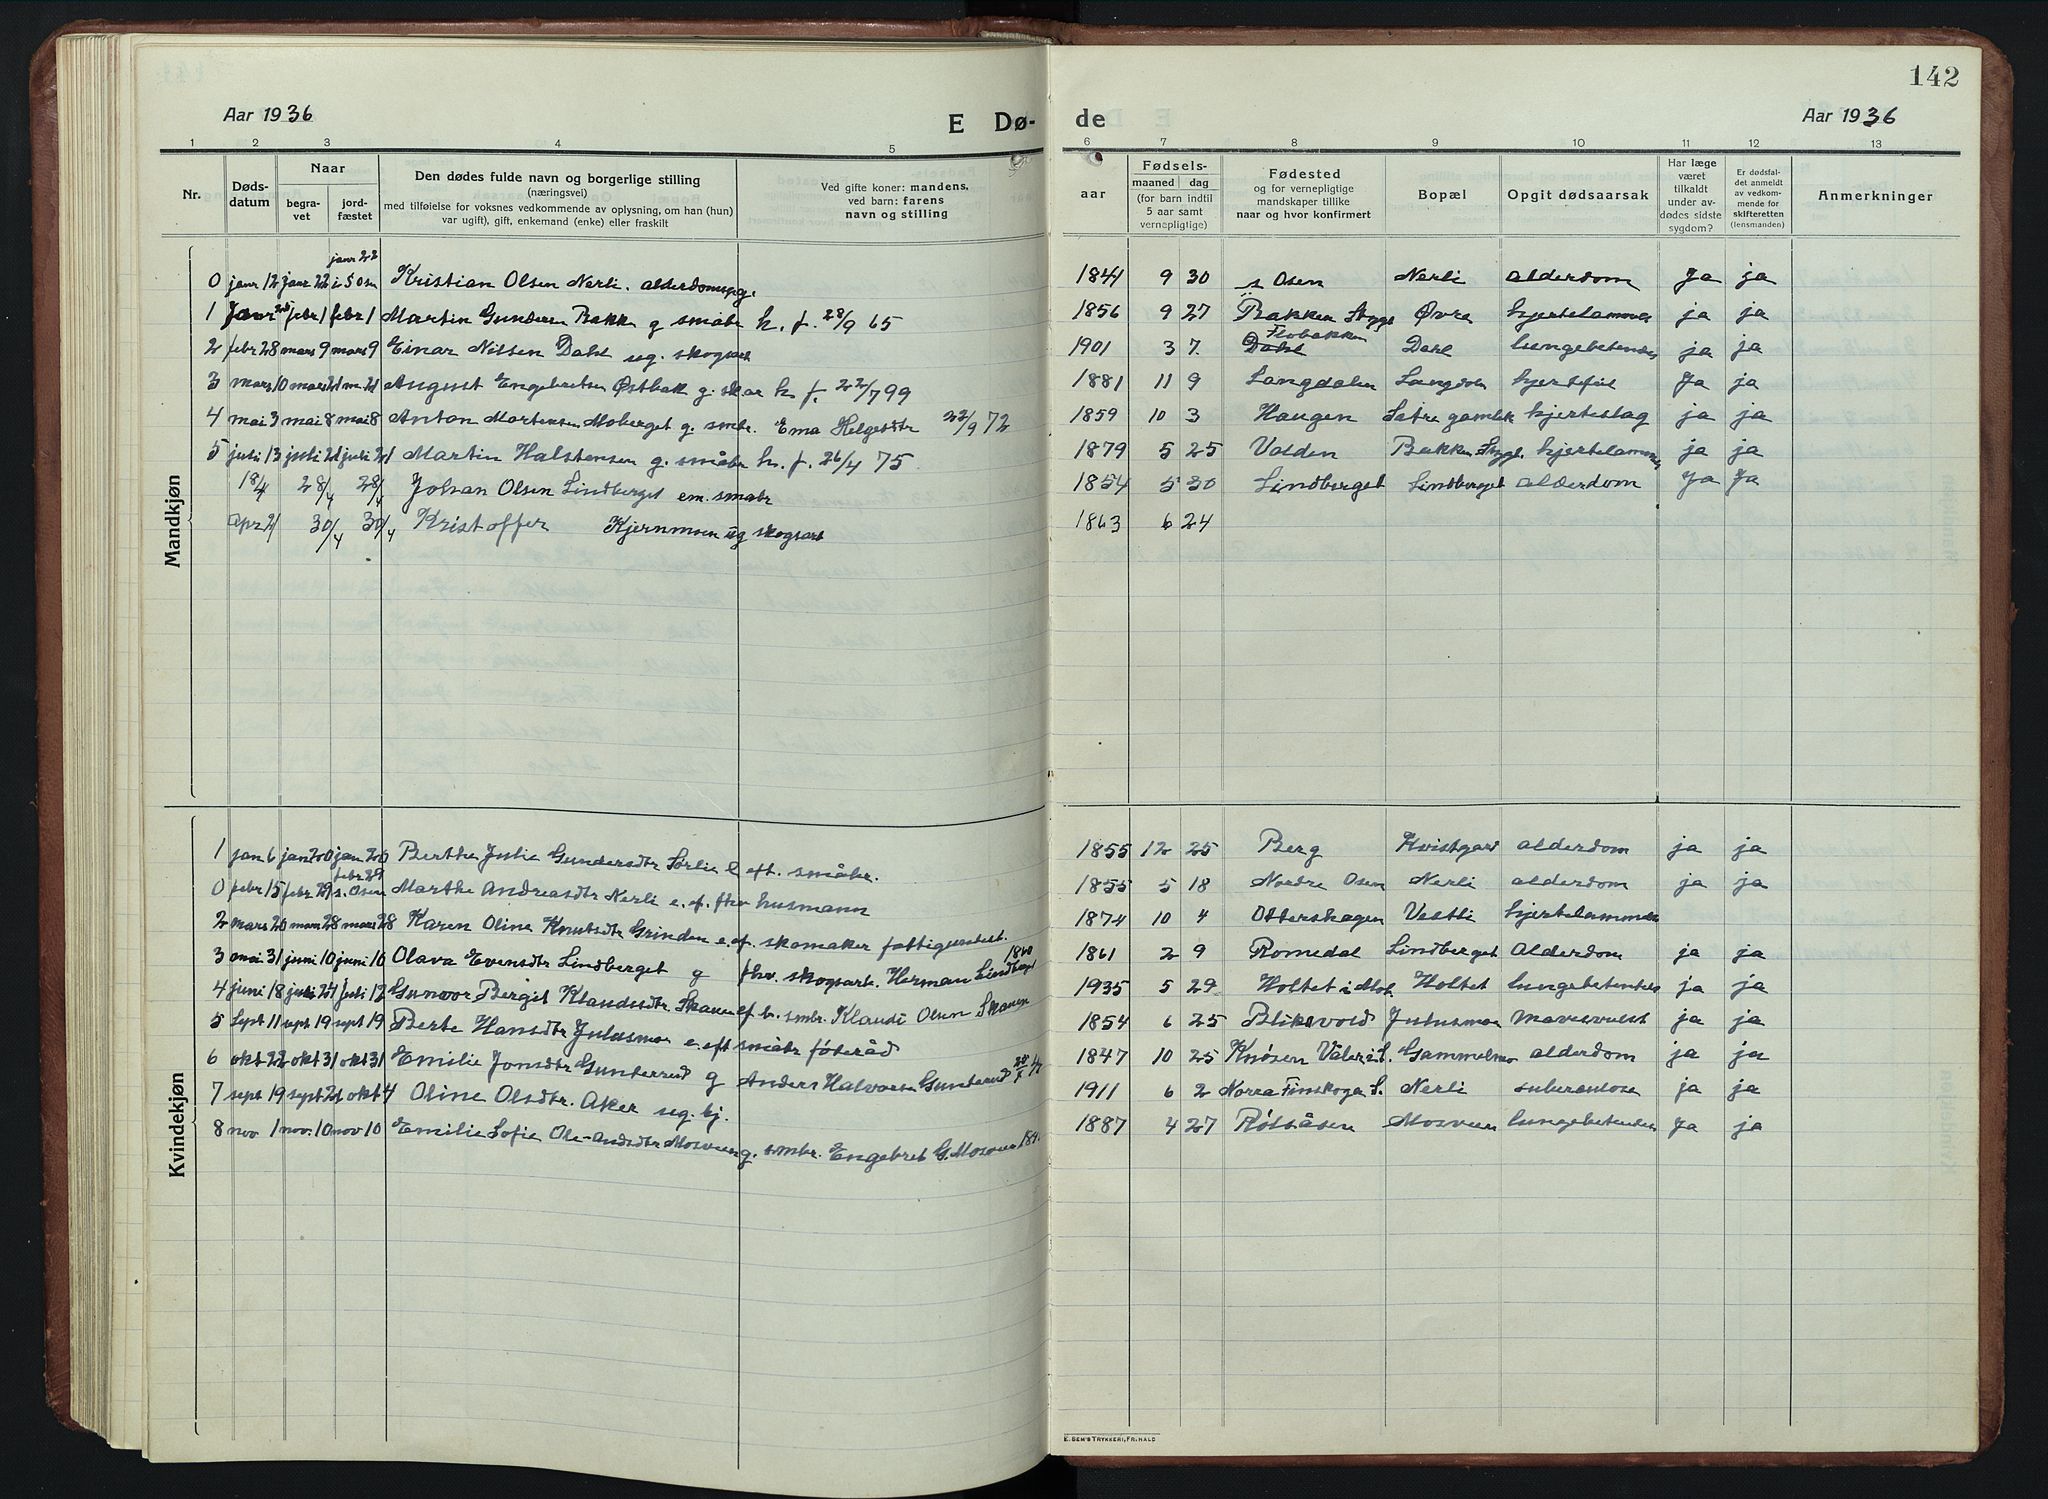 142
Aar 1936 E Dø- de Aar 1936
1 2 3 4 5 6 7 8 9 10 11 12 13
Nr. Døds-datum Naar begra-vet jord-fæstet Den dødes fulde navn og borgerlige stilling (næringsvei) med tilføielse for voksnes vedkommende av oplysning, om han (hun) var ugift), gift, enkemand (enke) eller fraskilt Ved gifte koner: mandens, ved barn: farens navn og stilling aar Fødsels- maaned dag (for barn indtil 5 aar samt vernepligtige) Fødested og for vernepligtige mandskaper tillike naar og hvor konfirmert Bopæl Opgit dødsaarsak Har læge været tilkaldt under av-dødes sidste sygdom? Er dødsfal-det anmeldt av vedkom-mende for skifteretten (lensmanden) Anmerkninger
Mandkjøn
0 janr 12 janr 22 janr 22 i S Osen Kristian Olsen Nerli. 1841 9 30 s Osen Nerli alderdom Ja ja
1 Janr febr 1 febr 1 Martin Gundersen Bakk g småbr h. f. 28/9 65 1856 9 27 Bakken Øvre ja ja
2 febr 28 mars 9 mars 9 Einar Nilsen Dahl ug. skogsarb 1901 3 7. Flobakken Dahl ja ja
3 mars 10 mars 21 m. 21 August Engebretsen Østbak g. skar h f. 22/7 99 1881 11 9 Langdalen hjertefeil Ja ja
4 mai 3 mai 8 mai 8 Anton Mortensen Moberget g. smbr. Ema Helgesdtr 22/9 72 1859 10 3 Haugen hjerteslag ja ja
5 juli 13 juli 21 juli 21 Martin Halstensen g. småbr h. f. 26/4 75 1879 5 25 Volden Bakken ja ja
18/4 28/4 28/4 Johan Olsen Lindberget em. småbr 1854 5 30 Lindberget Lindberget alderdom Ja Ja
Apr 21 30/4 30/4 Kristoffer Kjernmoen ug skogsarb 1863 6 24
Kvindekjøn
1 jan 6 jan 20 jan 20 Berthe Julie Gundersdtr Sørlie e eft. småbr. 1855 12 25 Berg Kvistgard alderdom ja ja
0 febr 15 febr 29 febr 29 s. Osen Marthe Andreasdtr Nerli e. ef. fhv husmann 1855 5 18 Nordre Osen Nerli alderdom ja ja
2 mars 20 mars 28 mars 28 Karen Oline Knutsdtr Grinden e. ef. skomaker 1874 10 4 Otterskogen Vestli
3 mai 31 juni 10 juni 10 Olava Evensdtr Lindberget g fhv. skogsarb. Herman Lindberget 1860 1861 2 9 Romedal Lindberget Alderdom ja ja
4 juni 18 juli juli 12 Gunvor Bergit Klausdtr. Skauen smbr. Klaudi Olsen Skauen 1935 5 29 Holtet Holtet ja ja
5 Sept 11 sept 19 sept 19 Berte Hansdtr Julusmo e. eft småbr føderåd 1854 6 25 Bliksvold Julusmo Mavesvulst ja ja
6 okt 22 okt 31 okt 31 Emilie Jonsdtr Gunterud g Anders Halvorsen Gunterud 1847 10 25 Knøsen Gammelmo alderdom ja ja
7 sept 19 sept 21 okt 4 Oline Olsdtr. Aker ug. tj. 1911 6 2 Norra Finskoga S. Nerli tuberculose ja ja
8 nov 1 nov. 10 nov 10 Emilie Sofie Ole-Andsdtr Mosveen g. smbr. Engebret G. Mosveen 1887 4 27 Røtåsen Mosveen Ja ja
E. SEM'S TRYKKERI, FR.HALD